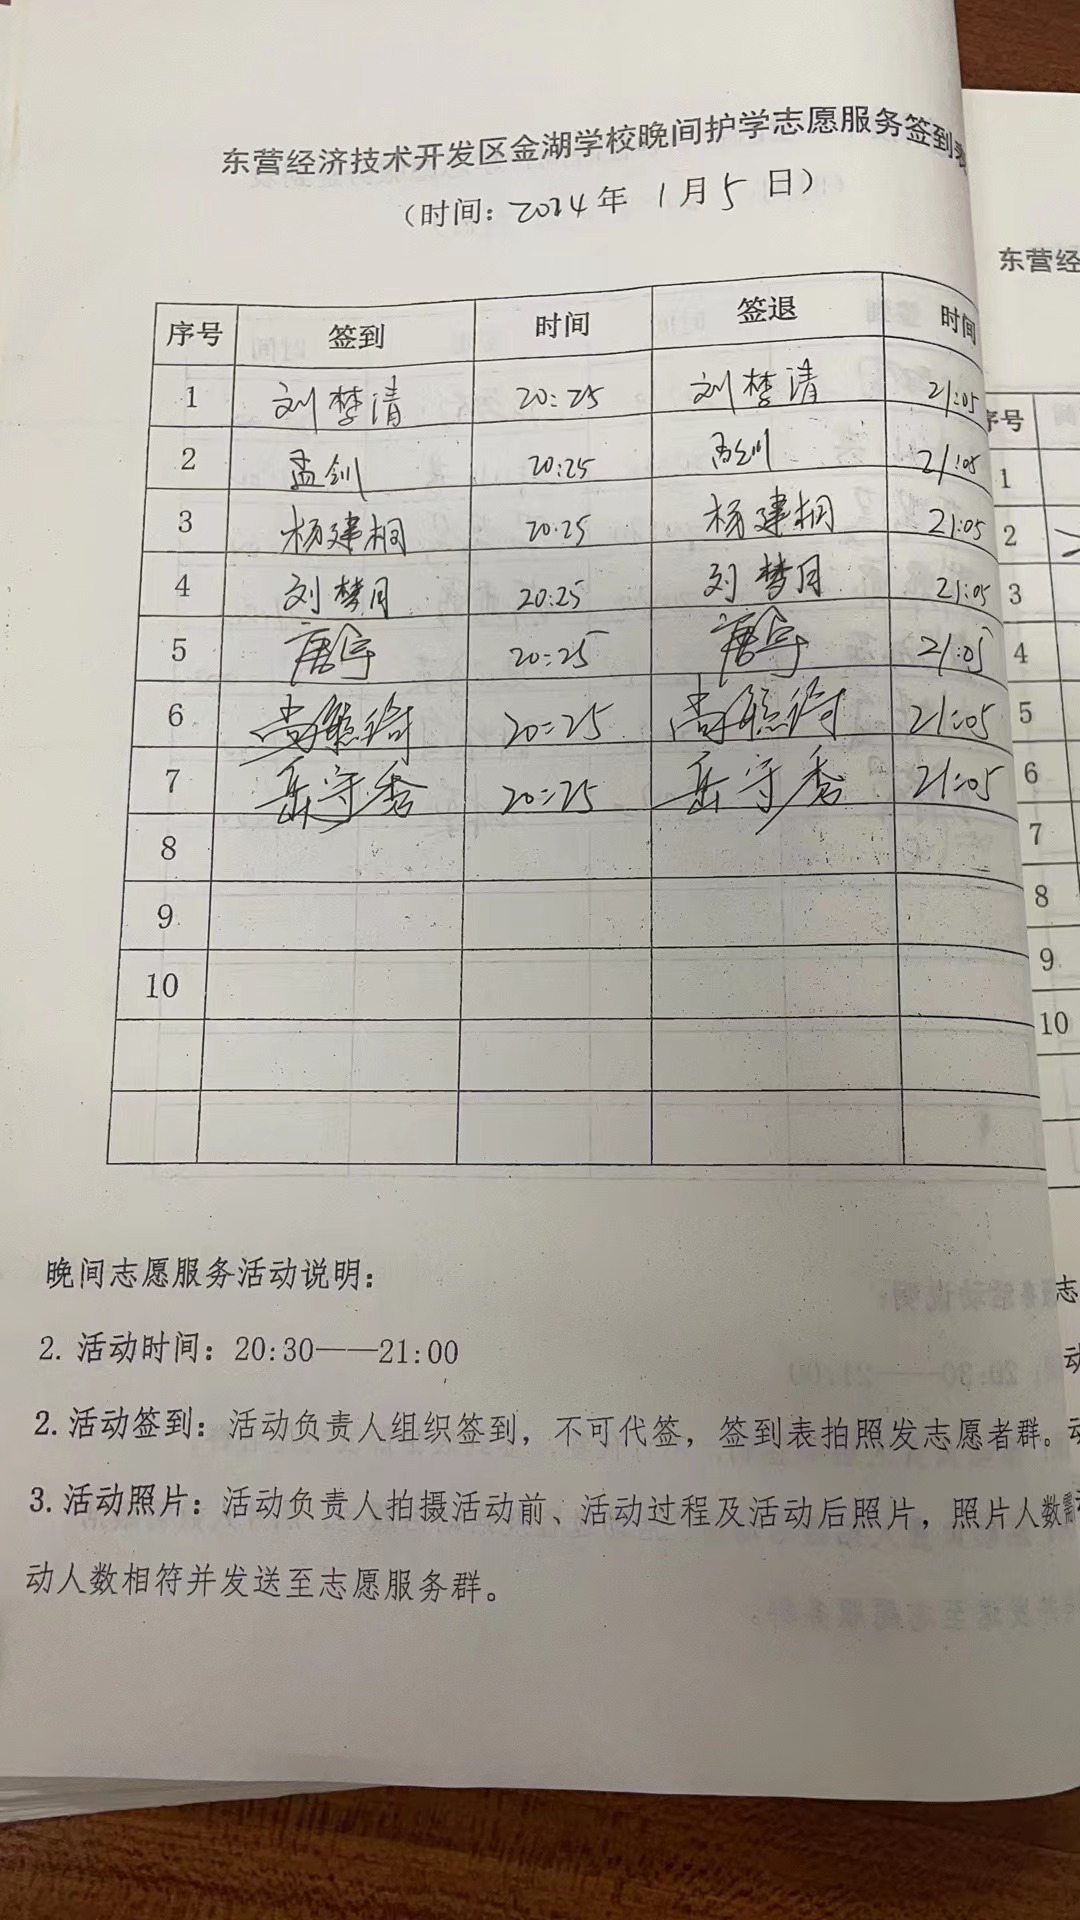 东营经济技术开发区金湖学校晚间护学志愿服务签到表
（时间：2024年 1月5日）
序号 签到 时间 签退 时间
1 刘梦清 20:25 刘梦清 21:05
2 孟钊 20:25 孟钊 21:05
3 杨建桐 20:25 杨建桐 21:05
4 刘梦月 20:25 刘梦月 21:05
5 唐宇 20:25 唐宇 21:05
6 20:25 21:05
7 岳守秀 20:25 岳守秀 21:05
8
9
10
晚间志愿服务活动说明：
2. 活动时间：20:30——21:00
2. 活动签到：活动负责人组织签到，不可代签，签到表拍照发志愿者群。
3. 活动照片：活动负责人拍摄活动前、活动过程及活动后照片，照片人数需
动人数相符并发送至志愿服务群。
东营经
序号
1
2
3
4
5
6
7
8
9
10
志
动